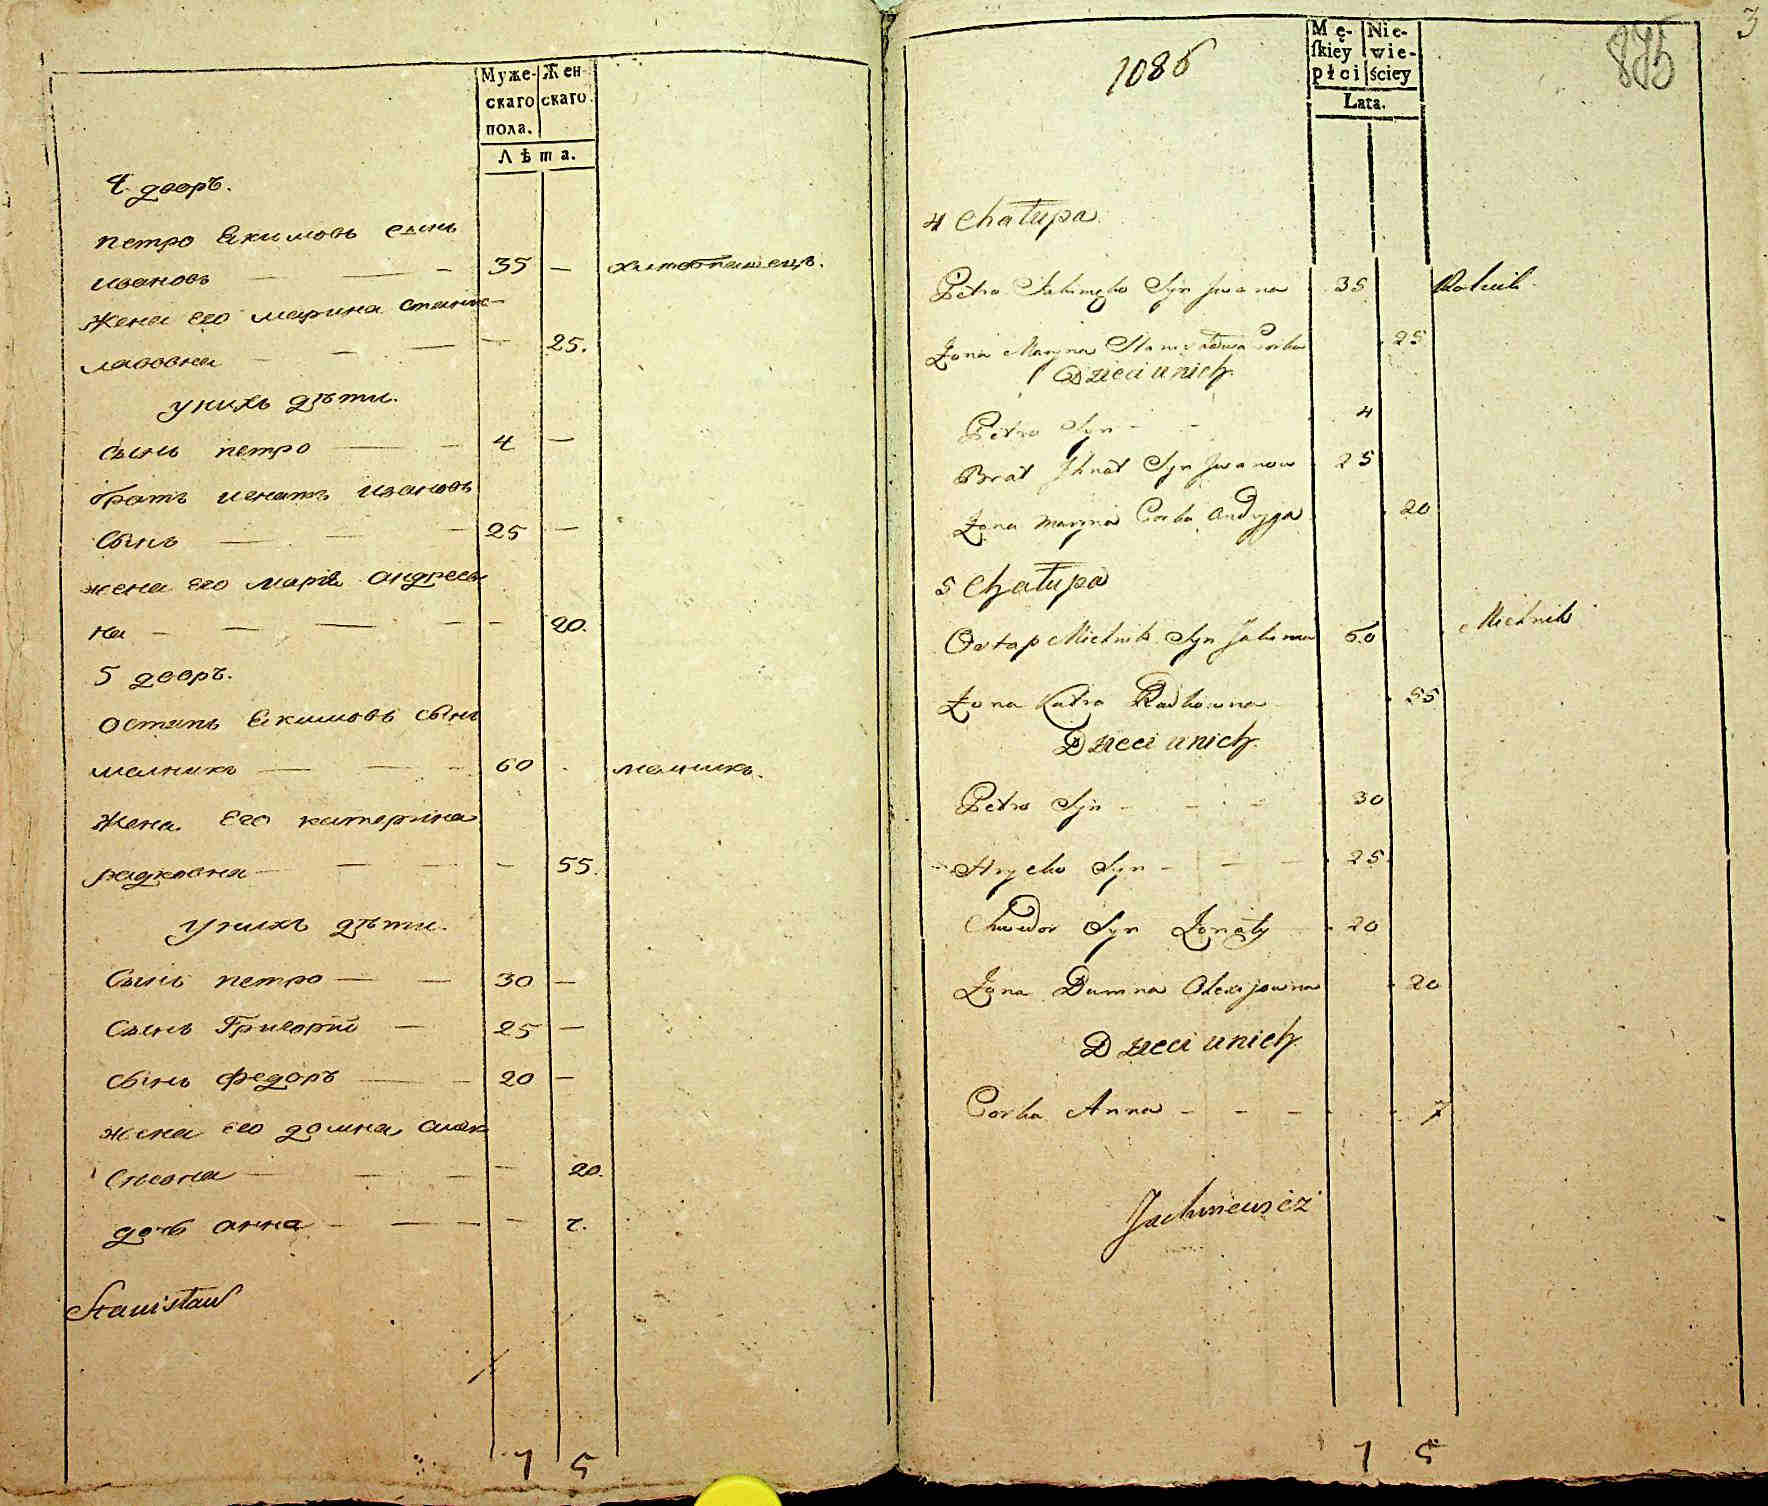 Муже-
скаго
пола.
Жен-
скаго.
Лѣта.
4 дворъ.
петро Екимовъ сынъ
ивановъ — — — 35 — хлебопашецъ.
Жена его марина станис-
лавовна — — — — 25.
унихъ дѣти.
Сынъ петро — — 4 —
братъ игнатъ ивановъ
Сынъ — — — 25 —
жена его марія андреев
на — — — — — 20.
5 дворъ.
остапъ Екимовъ сынъ
мелникъ — — — 60 мелникъ.
Жена Его катерина
радковна — — — — 55.
унихъ дѣти.
Сынъ петро — — 30 —
Сынъ Григорій — 25 —
Сынъ федоръ — — 20 —
жена его домна алек
сѣевна — — — — 20.
дочь анна — — — — 7.
Stanisław
7 5
3
875
1086
Mę-
skiey
płci
Nie-
wie-
ściey
Lata.
4 Chałupa
Petro Syn Jwana 35 Rolnik
Żona Maryna Stanisława Corka 25
Dzieci unich
Petro Syn - - 4
Brat Ihnat Syn Jwanow 25
Żona Maryna Corka Andryja 20
5 Chałupa
Ostap Mielnik Syn Jakima 60 Mielnik
Żona Katra Radkowna 55
Dzieci unich
Petro Syn - - - 30
Hryćko Syn - - - 25
Chwedor Syn Żonaty 20
Żona Dumna Olexijowna 20
Dzieci unich
Corka Anna - - - - - 7
Jachniewicz
7 5